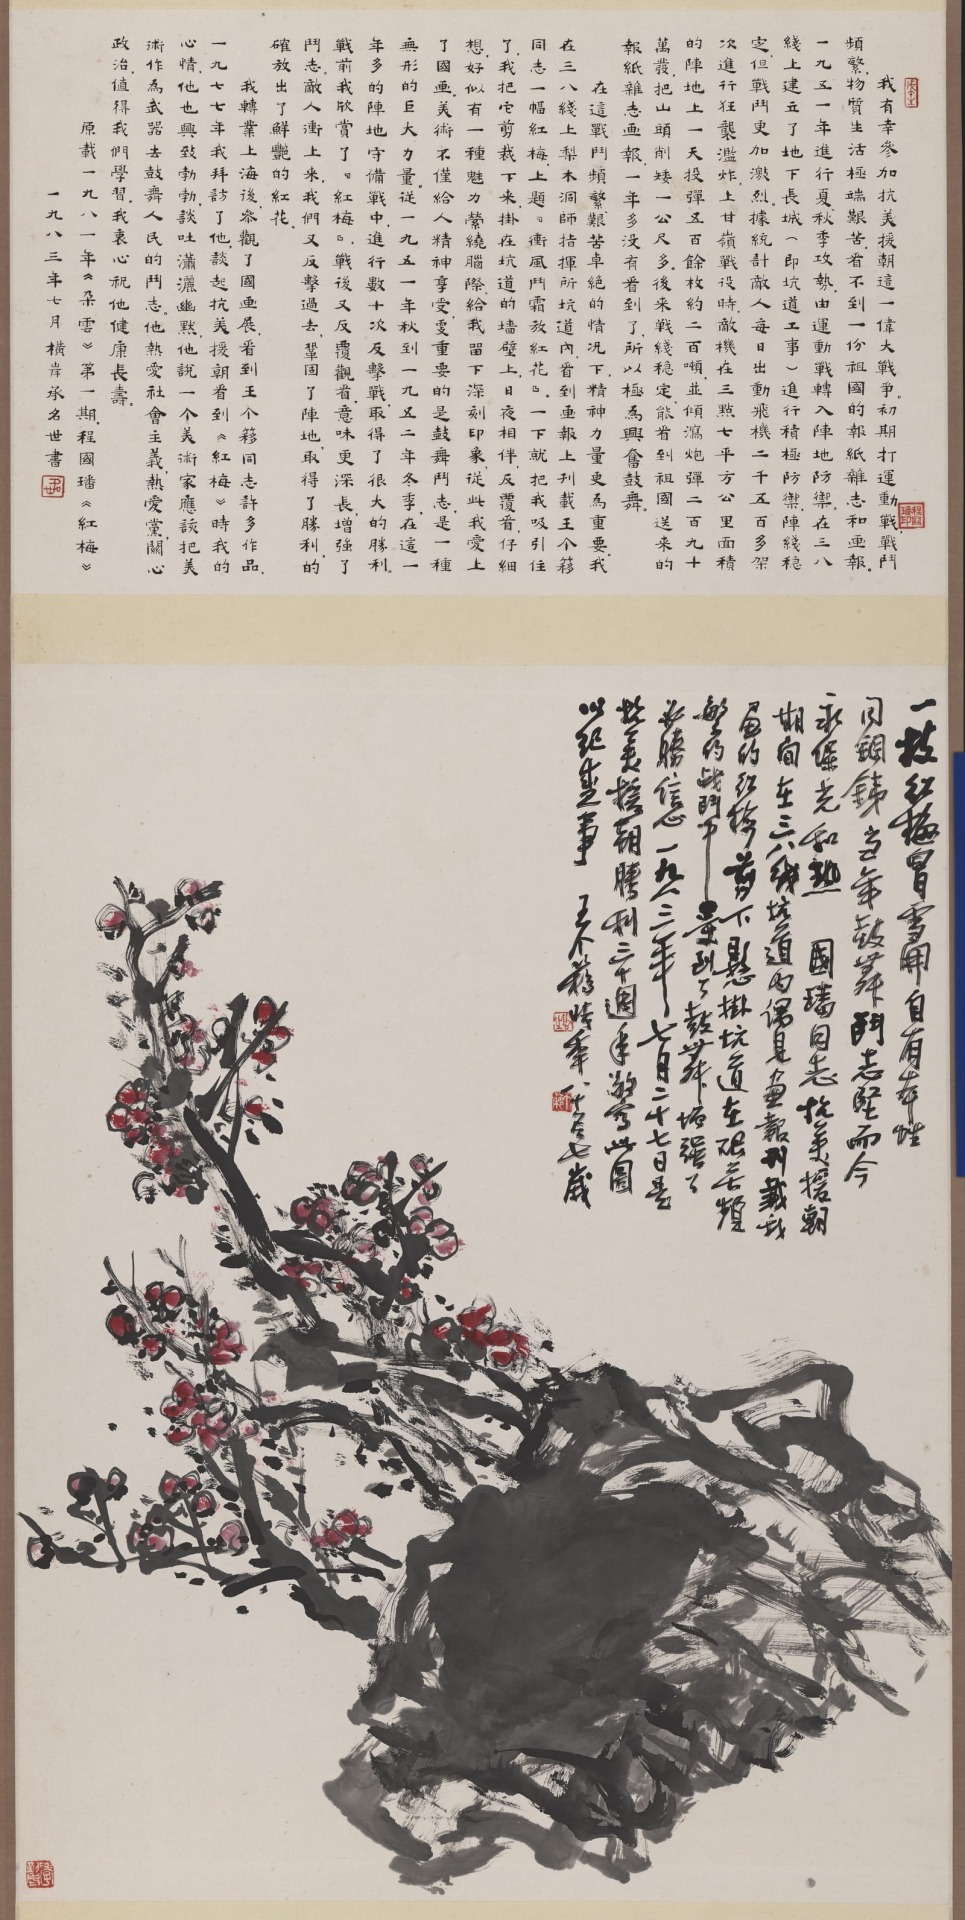 我有幸參加抗美援朝這一偉大戰爭。初期打運動戰，戰鬥
頻繁，物質生活極端艱苦，看不到一份祖國的報紙雜志和画報。
一九五一年進行夏秋季攻勢，由運動戰轉入陣地防禦。在三八
綫上建立了地下長城（即坑道工事）進行積極防禦，陣綫穩
定，但戰鬥更加激烈。據統計敵人每日出動飛機二千五百多架
次進行狂襲濫炸，上甘嶺戰役時，敵機在三點七平方公里面積
的陣地上一天投彈五百餘枚約二百噸，並傾瀉炮彈二百九十
萬發，把山頭削矮一公尺多。後來戰綫穩定，能看到祖國送來的
報紙雜志画報，一年多没有看到了，所以極爲興奮鼓舞。
在這戰鬥頻繁艱苦卓絶的情況下，精神力量更爲重要，我
在三八綫上梨木洞師指揮所坑道內，看到画報上刊載王个簃
同志一幅紅梅，上題『衝風鬥霜放紅花』。一下就把我吸引住
了，我把它剪裁下來掛在坑道的墻壁上，日夜相伴，反覆看，仔細
想，好似有一種魅力縈繞腦際，給我留下深刻印象，從此我愛上
了國画。美術不僅給人精神享受，更重要的是鼓舞鬥志，是一種
無形的巨大力量。從一九五一年秋到一九五二年冬季，在這一
年多的陣地守備戰中，進行數十次反擊戰，取得了很大的勝利。
戰前我欣賞了『紅梅』，戰後又反覆觀看，意味更深長，增強了
鬥志。敵人衝上來，我們又反擊過去，鞏固了陣地，取得了勝利，的
確放出了鮮艷的紅花。
我轉業上海後，參觀了國画展，看到王个簃同志許多作品，
一九七七年我拜訪了他，談起抗美援朝看到《紅梅》時我的
心情，他也興致勃勃，談吐瀟灑幽默，他說一个美術家應該把美
術作爲武器去鼓舞人民的鬥志。他熱愛社會主義，熱愛黨，關心
政治，值得我們學習，我衷心祝他健康長壽。
原載一九八一年《朵雲》第一期，程國璠《紅梅》
一九八三年七月橫岸承名世書
一枝紅梅冒雪開自有本性
同鋼鐵当年鼓舞鬥志堅而今
永保光和熱 國璠同志抗美援朝
期間在三八綫坑道内偶見画報刊載我
画的紅梅剪下懸掛坑道在艰苦頻
繁的战鬥中受到了鼓舞增强了
必勝信心一九八三年七月二十七日是
抗美援朝勝利三十週年敬寫此圖
以紀其事 王个簃時年八十有七歲